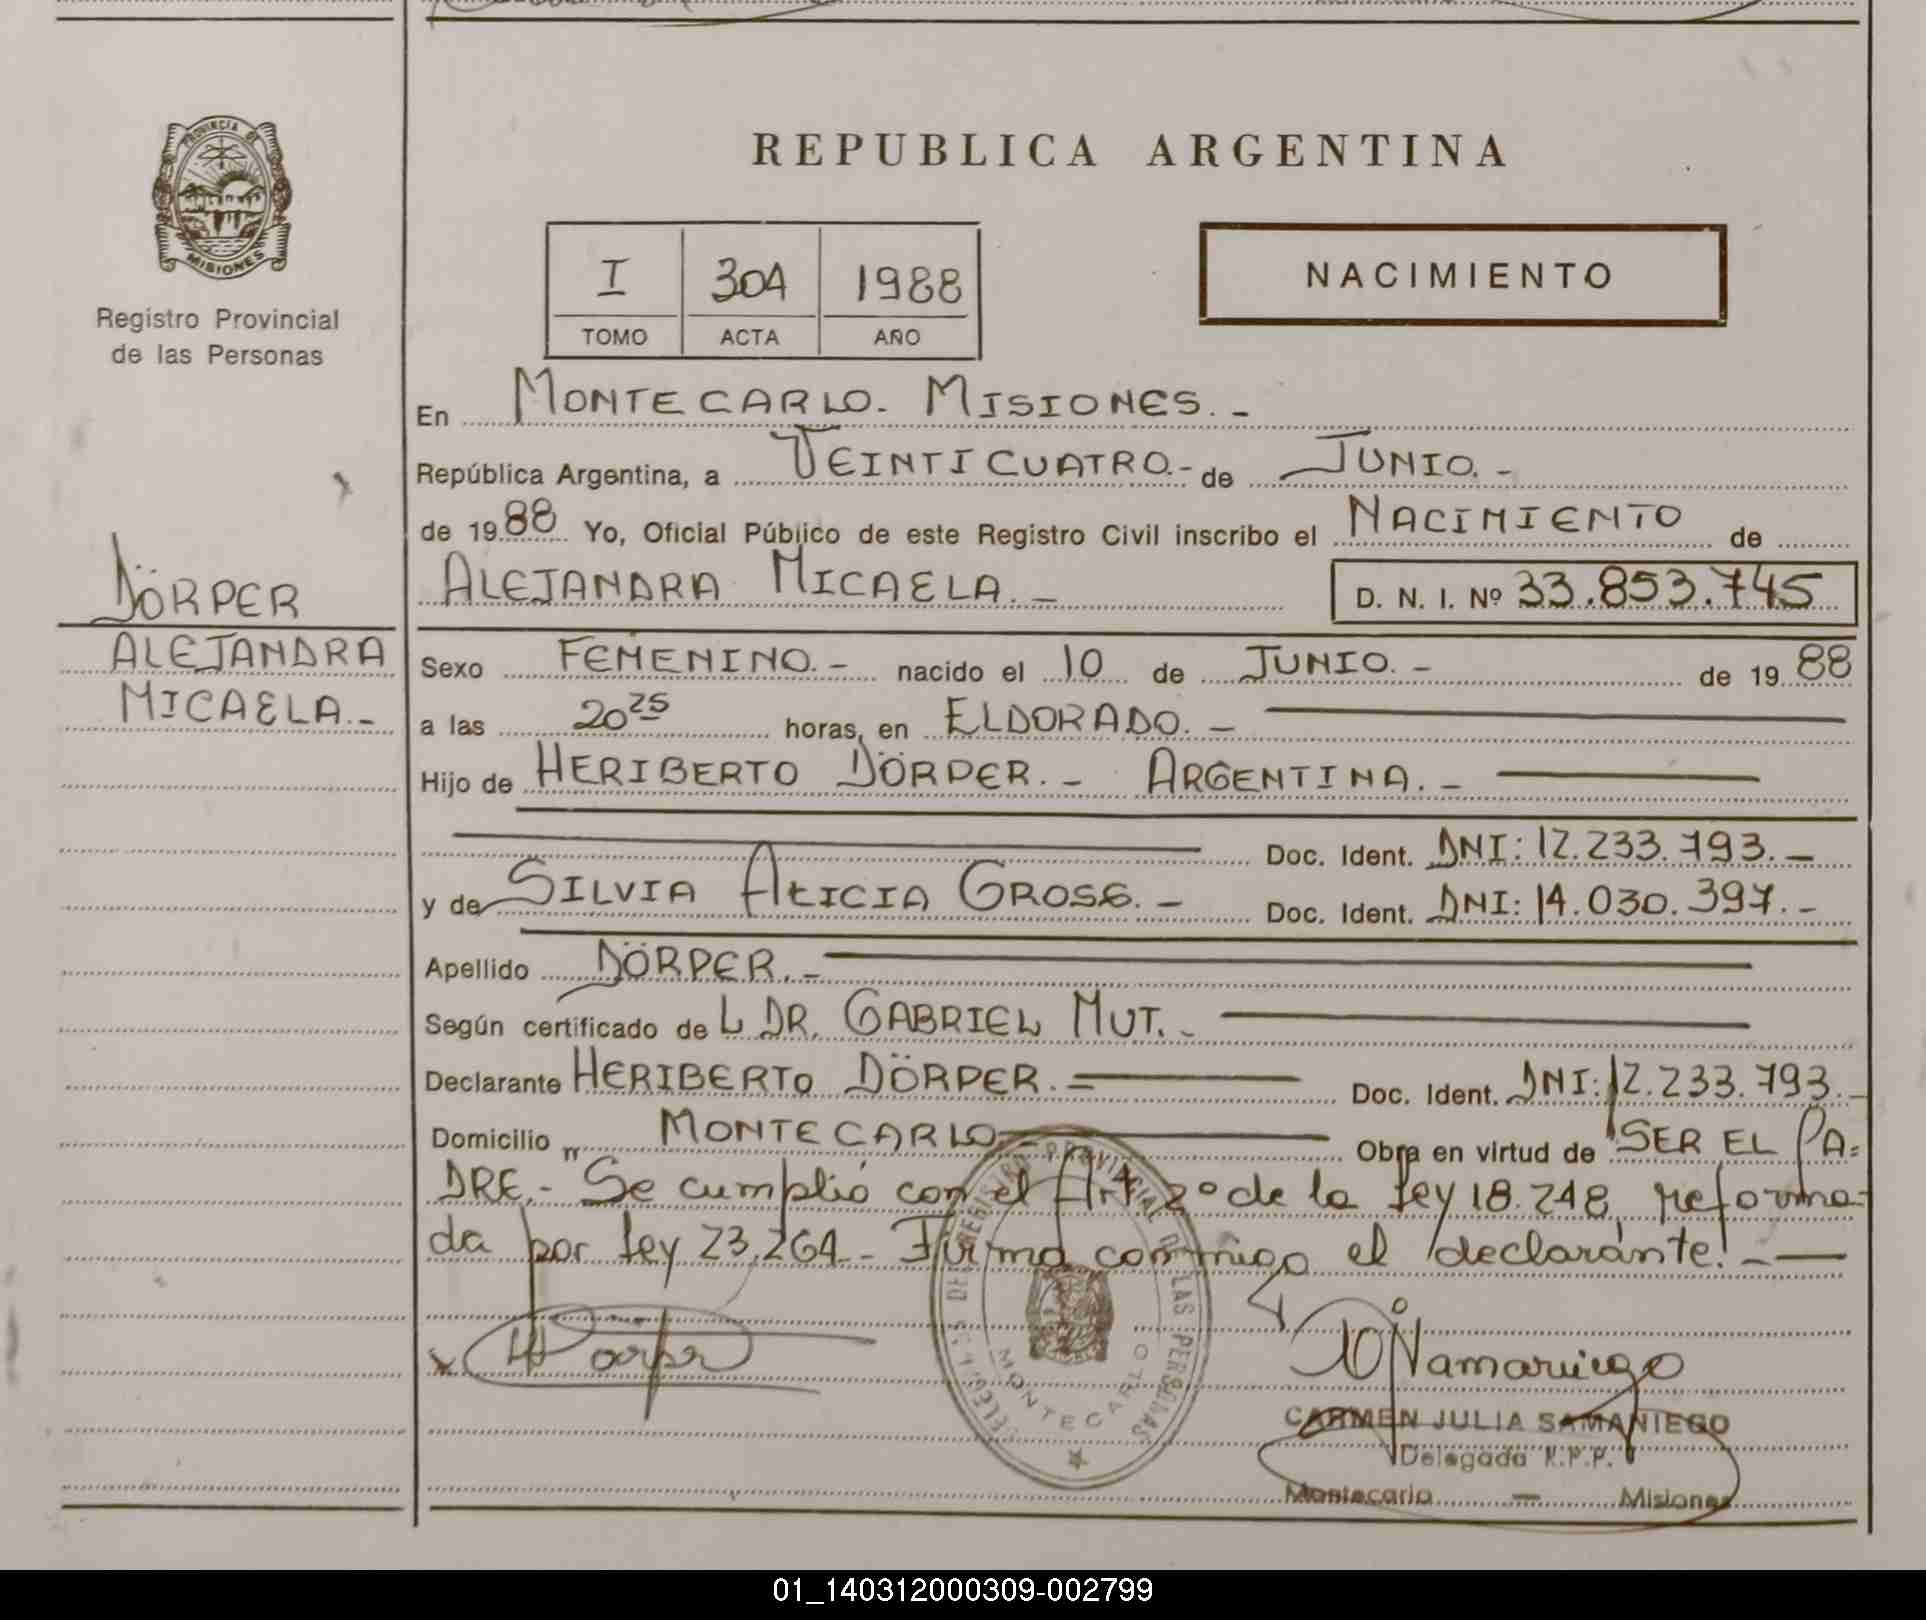 PROVINCIA DE
MISIONES
Registro Provincial
de las Personas
DÖRPER
ALEJANDRA
MICAELA.-
REPUBLICA ARGENTINA
I 304 1988
TOMO ACTA AÑO
NACIMIENTO
En MONTECARLO. MISIONES.-
República Argentina, a VEINTICUATRO.- de JUNIO.-
de 1988 Yo, Oficial Público de este Registro Civil inscribo el NACIMIENTO de
ALEJANDRA MICAELA.- D. N. I. Nº 33.853.745
Sexo FEMENINO.- nacido el 10 de JUNIO.- de 1988
a las 20 25 horas, en ELDORADO.-
Hijo de HERIBERTO DÖRPER.- ARGENTINA.-
Doc. Ident. DNI: 12.233.793.-
y de SILVIA ALICIA GROSE.- Doc. Ident. DNI: 14.030.397.-
Apellido DÖRPER.-
Según certificado de L DR. GABRIEL MUT.-
Declarante HERIBERTO DÖRPER.- Doc. Ident. DNI: 12.233.793.-
Domicilio MONTECARLO- Obra en virtud de SER EL PA=
DRE.- Se cumplió con el Art 2º de la Ley 18.248, reforma-
da por Ley 23.264.- Firma conmigo el declarante.-
DELEGACION REGISTRO PROVINCIAL DE LAS PERSONAS
MONTECARLO
x H Dörper
Samaniego
CARMEN JULIA SAMANIEGO
Delegada R.P.P.
Montecarlo - Misiones
01_140312000309-002799